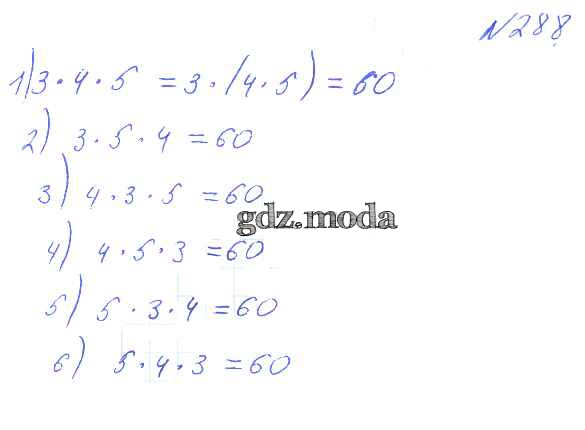 №288
1) 3·4·5 = 3·(4·5) = 60
2) 3·5·4 = 60
3) 4·3·5 = 60
gdz.moda
4) 4·5·3 = 60
5) 5·3·4 = 60
6) 5·4·3 = 60